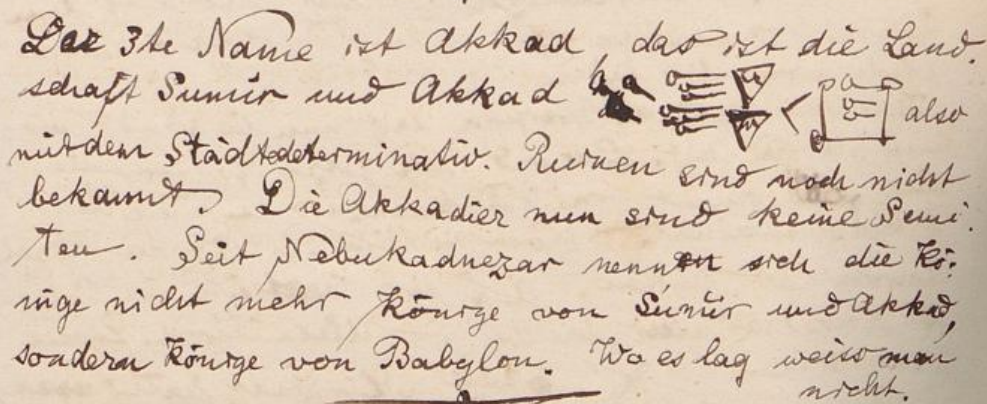 Der 3te Name ist Akkad, das ist die Land.
schaft Sumir und Akkad also
mit dem Städtedeterminativ. Ruinen sind noch nicht
bekannt. Die Akkadier nun sind keine Semi.
ten. Seit Nebukadnezar nennen sich die Kö:
nige nicht mehr Könige von Sumir und Akkad,
sondern Könige von Babylon. Wo es lag weiss man
nicht.